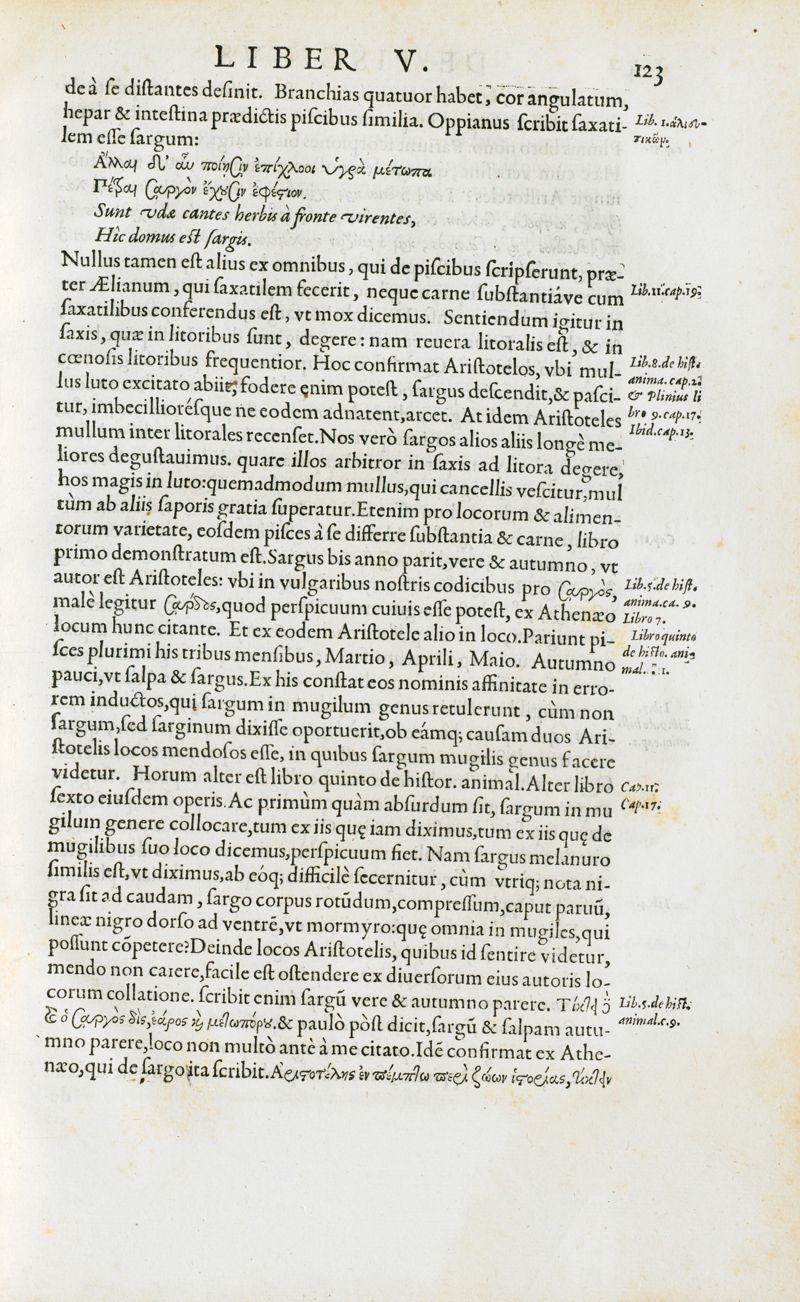 LIBER V. 123
de à ſe diſtantes deſinit. Branchias quatuor habet, cor angulatum,
hepar & inteſtina prædictis piſcibus ſimilia. Oppianus ſcribit ſaxati- Lib. 1. ἁλιευ-
lem eſſe ſargum: τικῶμ.
Ἄλλαι δ' αὖ ποίῃσιν ἐπίχλοοι ὑγρὰ μέτωπα
Πέτραι σαργὸν ἔχουσιν ἐφέστιον.
Sunt vdæ cantes herbis à fronte virentes,
Hic domus eſt ſargis.
Nullus tamen eſt alius ex omnibus, qui de piſcibus ſcripſerunt, præ-
ter Ælianum, qui ſaxatilem fecerit, neque carne ſubſtantiáve cum Lib. 11. cap. 19.
ſaxatilibus conferendus eſt, vt mox dicemus. Sentiendum igitur in
ſaxis, quæ in litoribus ſunt, degere: nam reuera litoralis eſt, & in
cœnoſis litoribus frequentior. Hoc confirmat Ariſtotelos, vbi mul- Lib. 8. de hiſt.
lus luto excitato abiit, fodere ęnim poteſt, ſargus deſcendit, & paſci- anima. cap. 2.
tur, imbecillioréſque ne eodem adnatent, arcet. At idem Ariſtoteles & Plinius li
mullum inter litorales recenſet. Nos verò ſargos alios aliis longè me- bro 9. cap. 17.
liores deguſtauimus. quare illos arbitror in ſaxis ad litora degere, Ibid. cap. 13.
hos magis in luto: quemadmodum mullus, qui cancellis veſcitur, mul
tùm ab aliis ſaporis gratia ſuperatur. Etenim pro locorum & alimen-
torum varietate, eoſdem piſces à ſe differre ſubſtantia & carne, libro
primo demonſtratum eſt. Sargus bis anno parit, vere & autumno, vt
autor eſt Ariſtoteles: vbi in vulgaribus noſtris codicibus pro σαργὸς, Lib. 5. de hiſt.
malè legitur σαρδος, quod perſpicuum cuiuis eſſe poteſt, ex Athenæo anima. ca. 9.
locum hunc citante. Et ex eodem Ariſtotele alio in loco. Pariunt pi- Libro 7.
ſces plurimi his tribus menſibus, Martio, Aprili, Maio. Autumno Libro quinto
pauci, vt ſalpa & ſargus. Ex his conſtat eos nominis affinitate in erro- de hiſto. ani-
rem inductos, qui ſargum in mugilum genus retulerunt, cùm non mal.
ſargum, ſed ſarginum dixiſſe oportuerit, ob eámq; cauſam duos Ari-
ſtotelis locos mendoſos eſſe, in quibus ſargum mugilis genus facere
videtur. Horum alter eſt libro quinto de hiſtor. animal. Alter libro Cap. 11.
ſexto eiuſdem operis. Ac primùm quàm abſurdum ſit, ſargum in mu Cap. 17.
gilum genere collocare, tum ex iis quę iam diximus, tum ex iis quę de
mugilibus ſuo loco dicemus, perſpicuum fiet. Nam ſargus melanuro
ſimilis eſt, vt diximus, ab eóq; difficilè ſecernitur, cùm vtriq; nota ni-
gra ſit ad caudam, ſargo corpus rotūdum, compreſſum, caput paruū,
lineæ nigro dorſo ad ventrē, vt mormyro: quę omnia in mugiles, qui
poſſunt cōpetere? Deinde locos Ariſtotelis, quibus id ſentire videtur,
mendo non carere, facile eſt oſtendere ex diuerſorum eius autoris lo-
corum collatione. ſcribit enim ſargū vere & autumno parere. Τίκτει δὲ Lib. 5. de hiſt.
καὶ ὁ σαργὸς δὶς, ἔαρος καὶ μετοπώρου. & paulò pòſt dicit, ſargū & ſalpam autu- animal. c. 9.
mno parere, loco non multò antè à me citato. Idē confirmat ex Athe-
næo, qui de ſargo ita ſcribit. Ἀριστοτέλης ἐν πέμπτῳ περὶ ζώων ἱστορίας, τίκτειν